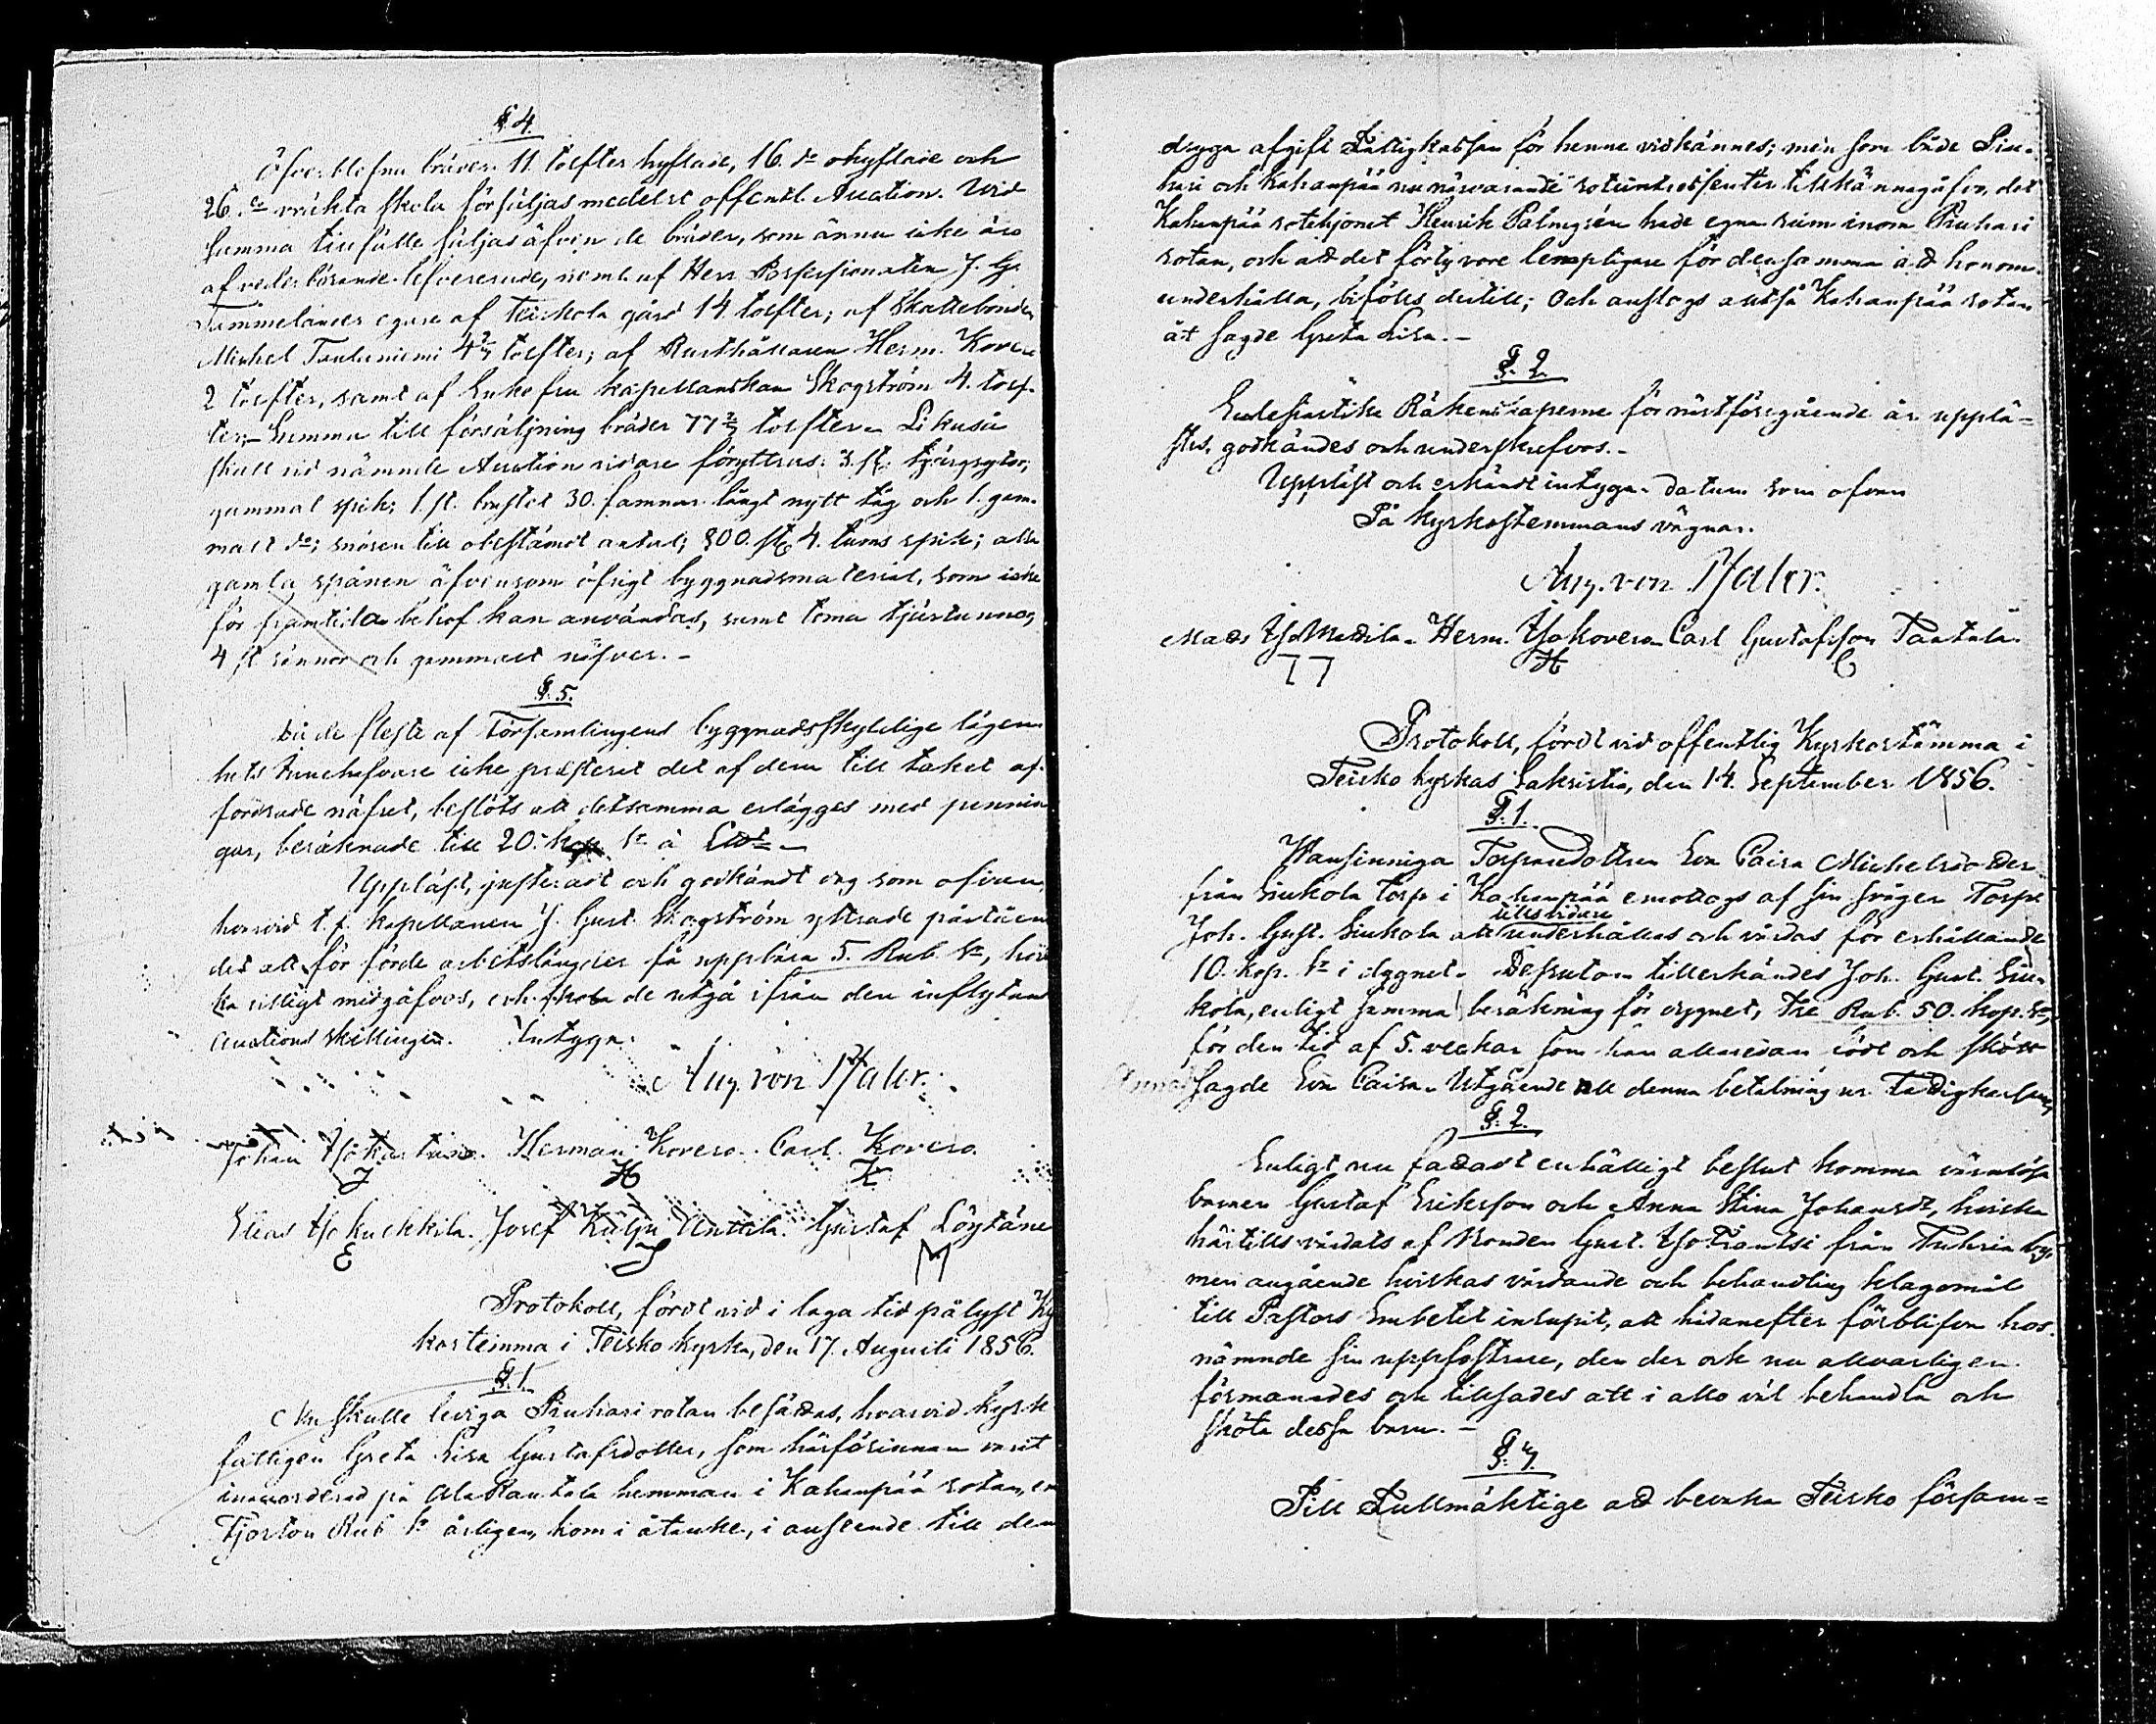 § 4.
Öfverblefne bräder 11. tolfter hyflade, 16. do ohyflade och
26. do vräckta skola försäljas medelst offentl. Auction. Vid
samma tillfälle säljas äfven de bräder, som ännu icke äro
af vederbörande lefvererade, neml. af Herr Possessionaten J. G.
Tammelander egare af Teiskola gård 14 tolfter; af Skattebonden
Michel Taulaniemi 4 2/7 tolfter; af Rusthållaren Herm. Kovero
2 tolfter, samt af Enkefru Kapellanskan Skogström 4. tolf-
ter; Summa till försäljning bräder 77 2/7 tolfter. Likaså
skall vid nämnde Auction vidare föryttras: 3. st. tjärgrytor;
gammal spik; 1. st. brustet 30. famnar långt nytt tåg och 1. gam-
malt do; snören till obestämdt antal; 800. st. 4. tums spik; alla
gamla spånen äfvensom öfrigt byggnadsmaterial, som icke
för framtida behof kan användas, samt toma tjärtunnor,
4 st rännor och gammalt näfver. -
§. 5.
Då de fleste af Församlingens byggnadsskyldige lägen-
hets innehafvare icke præsterat det af dem till taket af-
fordrade näfret, beslöts att detsamma erlägges med pennin-
gar, beräknade till 20. kop. Sr à
Uppläst, justeradt och godkändt dag som ofvan,
hvarvid t. f. Kapellanen J. Gust. Skogström yttrade påståen-
det att för förde arbetslängder få uppbära 5. Rub. Sr, hvil-
ka villigt medgåfvos, och skola de utgå ifrån den inflytande
Auctions skillingen. Intygar:
Aug. von Pfaler.
Johan Herman Kovero. Carl Kovero.
J H K
Elias Yso Kuckkila. Josef Kulju Anttila. Gustaf Löytäne
E J M
Protokoll, fördt vid i laga tid pålyst Kyr-
kostämma i Teisko kyrka, den 17. Augusti 1856.
§. 1.
Nu skulle lediga Pinhari rotan besättas, hvarvid kyrk-
fattigen Greta Lisa Gustafsdotter, som härförinnan varit
inaccorderad på Ala Rautala hemman i Kahanpää rotan, en
Fjorton Rub. Sr årligen, kom i åtanke, i anseende till den
dryga afgift Fattigkassan för henne vidkännes; men som både Piu-
hari och Kahanpää nu närvarande rotintressenter tillkännagåfvo, det
Kahanpää rotehjonet Henrik Palmgrén hade egna rum inom Piuhari
rotan, och att det förty vore lämpligare för densamma att honom
underhålla, bifölls dertill; Och anslogs alltså Kahanpää rotan
åt sagde Greta Lisa. -
§. 2.
Ecclesiastike Räkenskaperne för nästföregående år upplä-
stes, godkändes och underskrefvos. -
Uppläst och erkändt intyga. Datum som ofvan
På Kyrkostemmans vägnar.
Aug. von Pfaler.
Mats Yso Mattila. Herm. Yso Kovero. Carl Gustafsson Taatala.
H C
Protokoll, fördt vid offentlig Kyrkostämma i
Teisko kyrkas Sakristia, den 14. September 1856.
§. 1.
Vansinniga Torparedottren Eva Caisa Michelsdotter
från Siukola torp i Kahanpää emottogs af sin svåger Torp.
tillsvidare
Joh. Gust. Siukola att underhållas och vårdas för erhållande
10. kop. Sr i dygnet. Dessutom tillerkändes Joh. Gust. Siu-
kola, enligt samma beräkning för dygnet, Tre Rub. 50. kop. Sr,
för den tid af 5. veckar som han allaredan födt och skött
sagde Eva Caisa. Utgående all denna betalning ur Fattigkassan,
§. 2.
Enligt nu fattadt enhälligt beslut komma värnlösa
barnen Gustaf Eriksson och Anna Stina Johansdr, hvilka
härtills vårdats af Bonden Gust. Yso Frantsi från Terhia by,
men angående hvilkas vårdande och behandling klagomål
till Pastors Embetet inlupit, att hädanefter förblifva hos
nämnde sin uppfostrare, den der ock nu allvarligen
förmanades och tillsades att i allo väl behandla och
sköta dessa barn. -
Till Fullmäktige att bevaka Teisko försam-